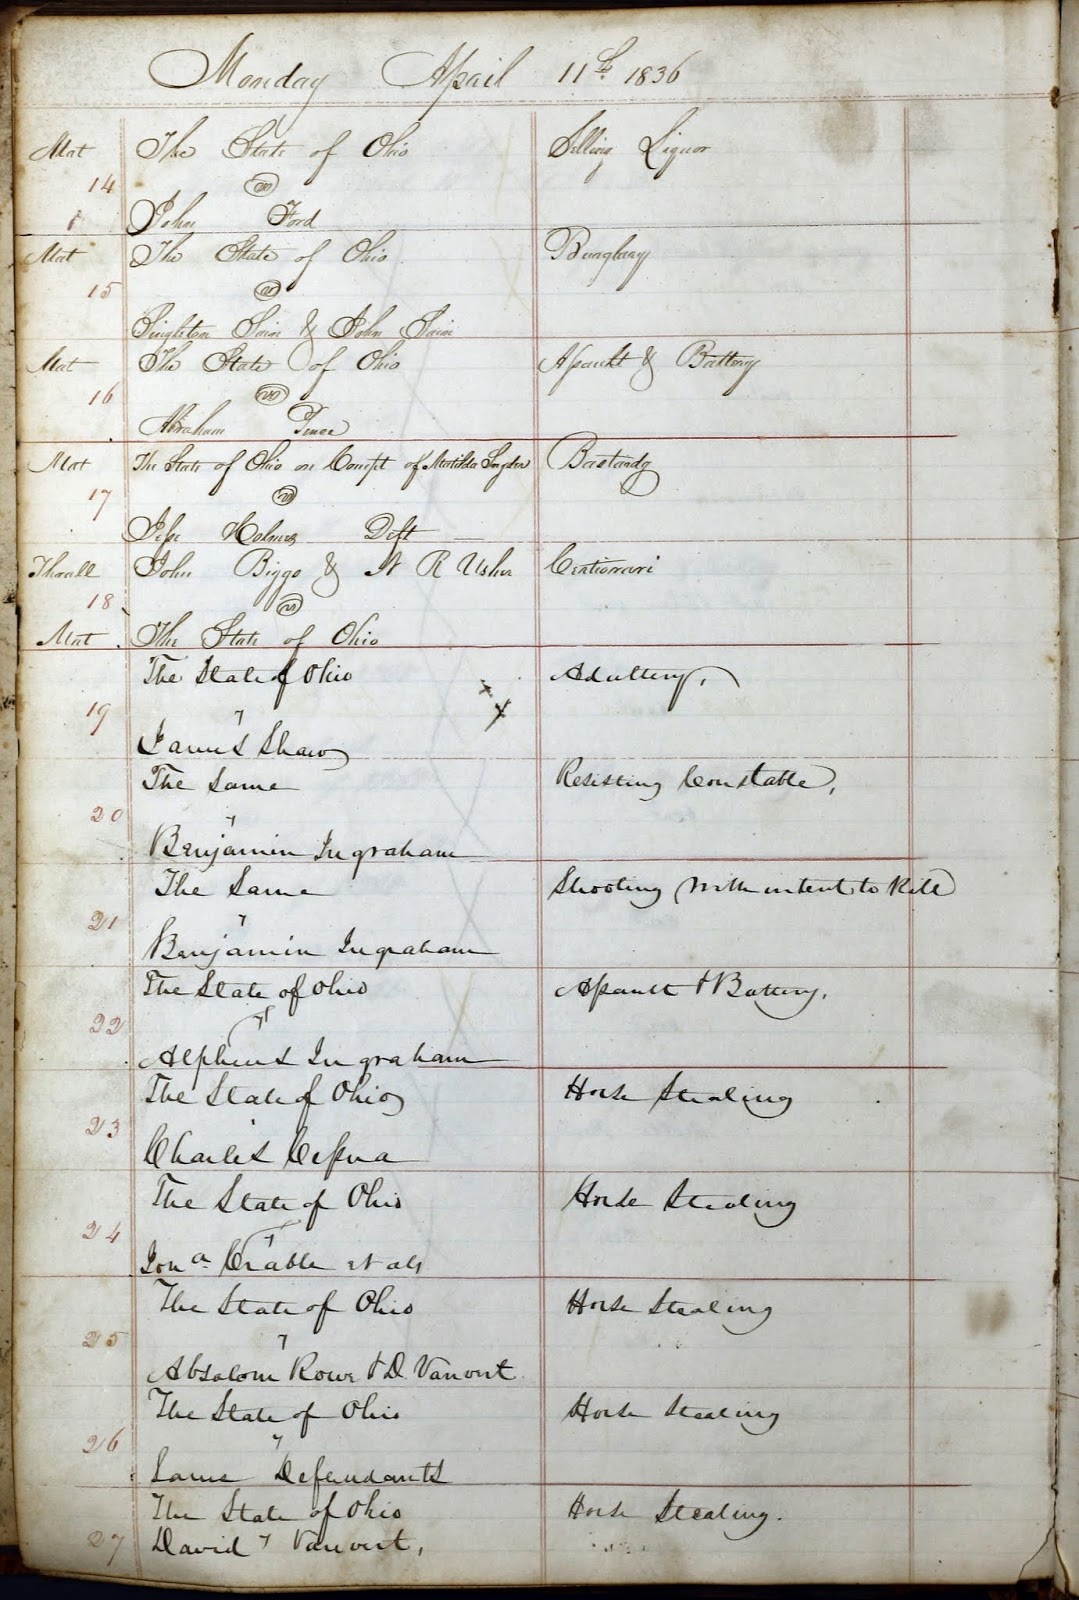 Monday April 11th 1836
Mat The State of Ohio Selling Liquor
14 vs
John Ford
Mat The State of Ohio Burglary
15 vs
Singleton Sain & John Sain
Mat The State of Ohio Assault & Battery
16 vs
Abraham
Mat The State of Ohio on Compt of Matilda Snyder Bastardy
17 vs
Jesse Holmes Deft
Thrall John Biggs & N R Usher Certiorari
18 vs
Mat The State of Ohio
The State of Ohio Adultery,
19 v
James Shaw
The Same Resisting Constable,
20 v
Benjamin Ingraham
The Same Shooting with intent to Kill
21 v
Benjamin Ingraham
The State of Ohio Assault & Battery,
22 v
Alpheus Ingraham
The State of Ohio Horse Stealing
23
Charles Cessna
The State of Ohio Horse Stealing
24 v
Jona Crable et als
The State of Ohio Horse Stealing
25 v
Absalom Rowe & D Vanvort
The State of Ohio Horse Stealing
26 v
Same Defendants
The State of Ohio Horse Stealing.
27 David v Vanvort,